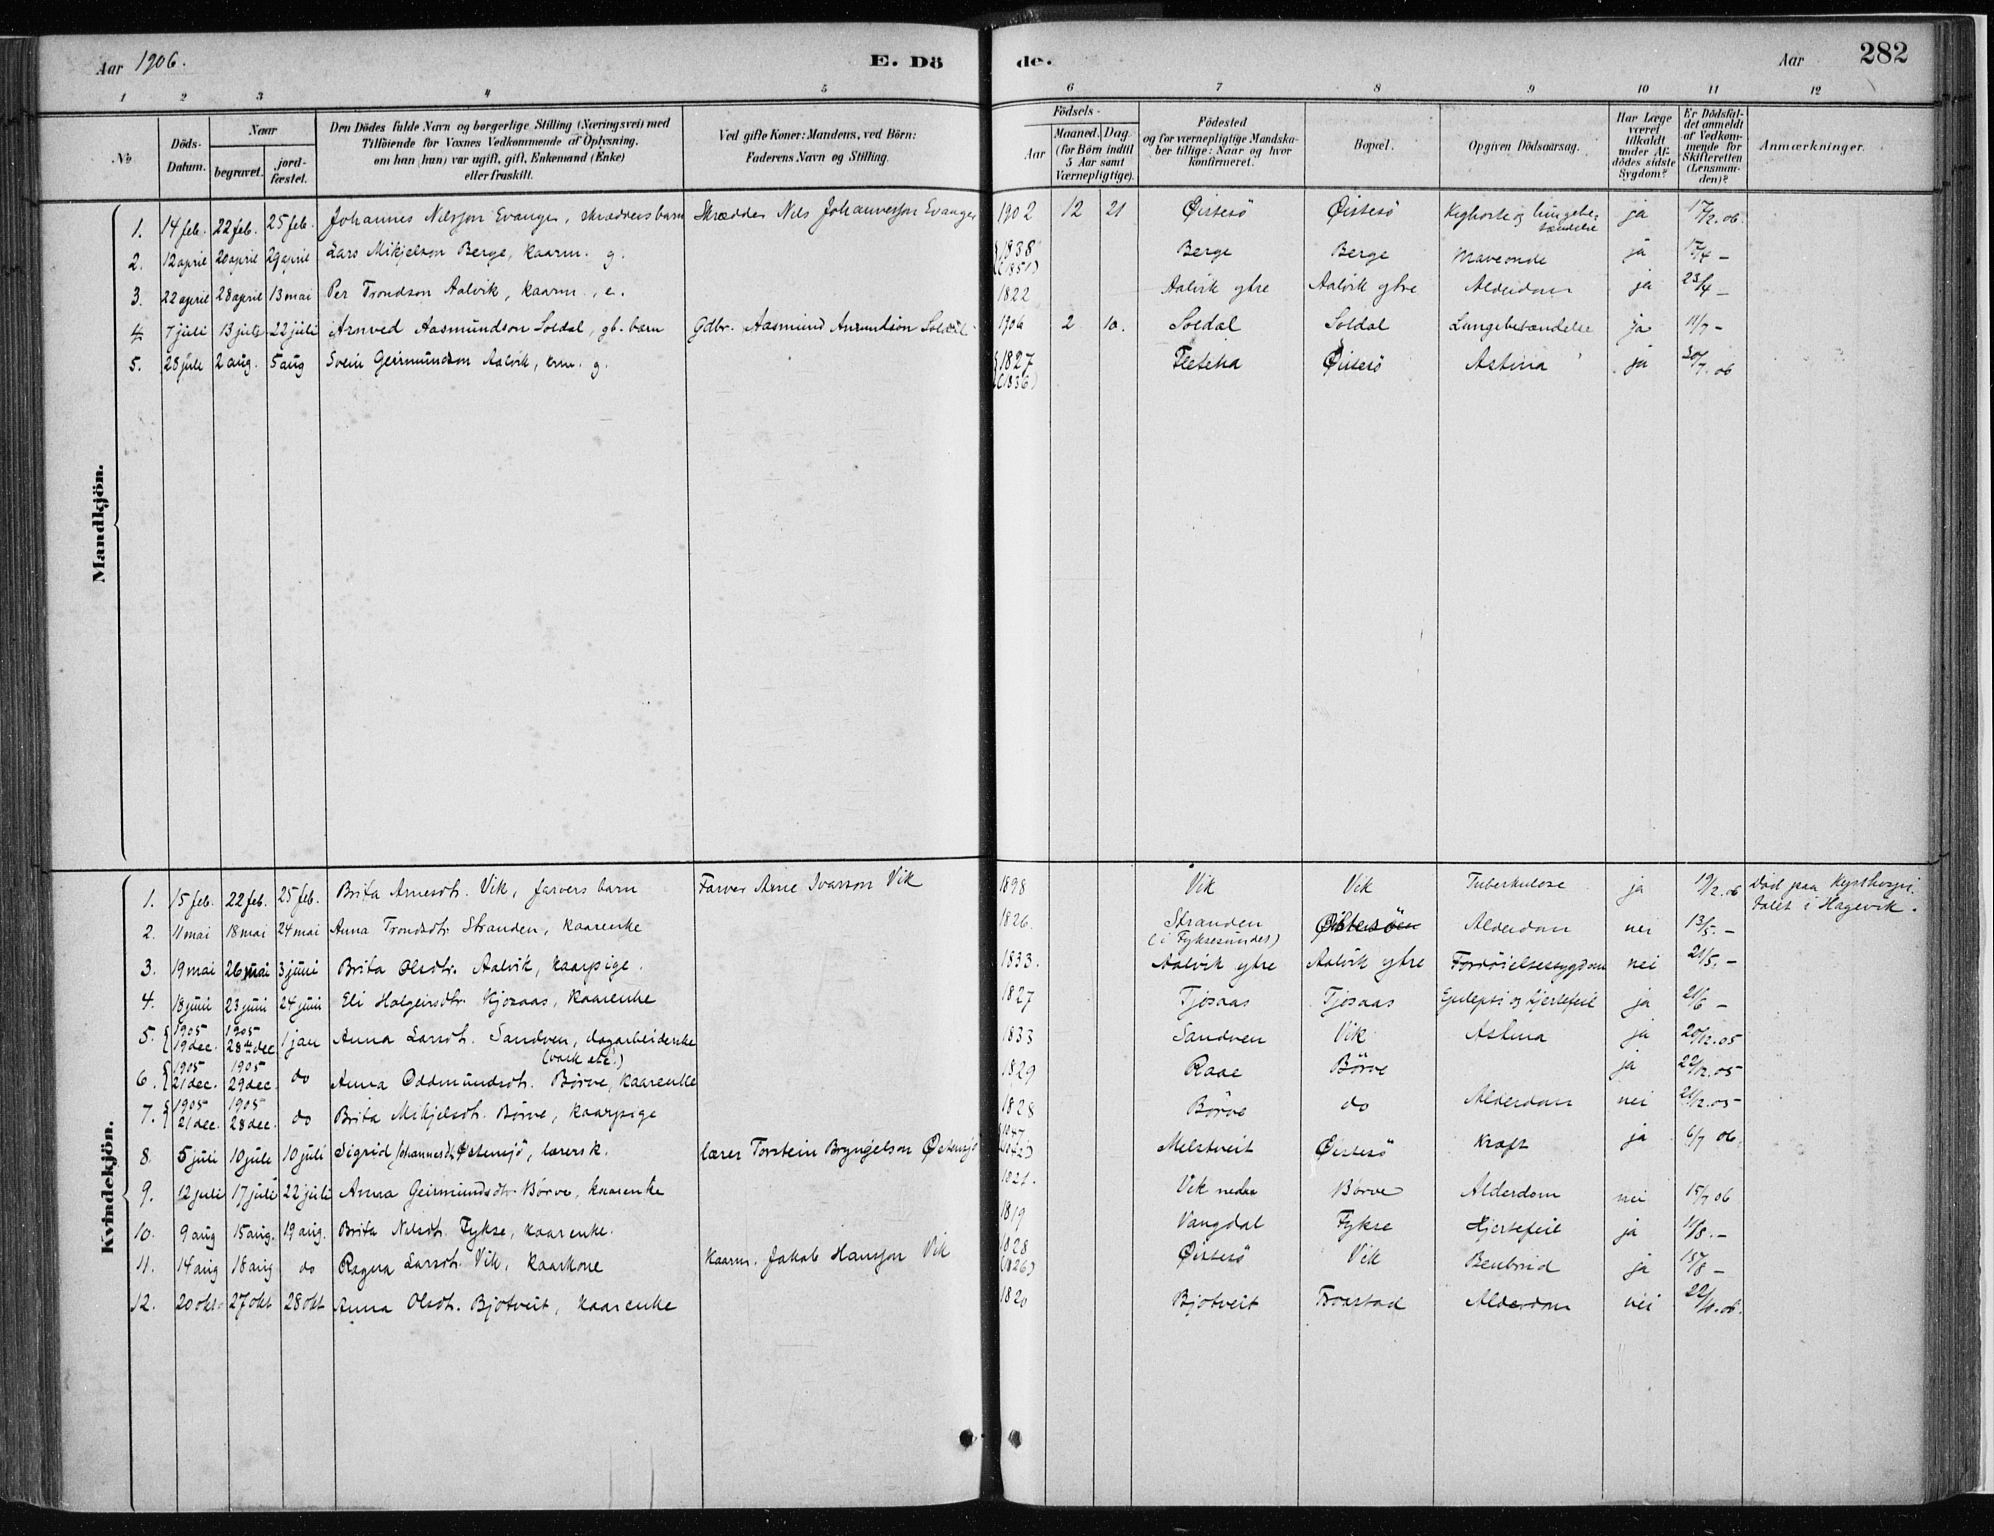 Aar 1906. E. Döde. Aar 282
1 2 3 4 5 6 7 8 9 10 11 12
No
Döds-Datum.
Naar begravet. jordfæstet.
Den Dödes fulde Navn og borgerlige Stilling (Næringsvei) med Tilföiende for Voxnes Vedkommende af Oplysning, om han (hun) var ugift, gift, Enkemand (Enke) eller fraskilt.
Ved gifte Koner: Mandens, ved Börn: Faderens Navn og Stilling.
Födsels- Aar Maaned. Dag. (for Börn indtil 5 Aar samt Værnepligtige).
Födested og for værnepligtige Mandskaber tillige: Naar og hvor Konfirmeret.
Bopæl.
Opgiven Dödsaarsag.
Har Læge været tilkaldt under Afdödes sidste Sygdom?
Er Dödsfaldet anmeldt af Vedkommende for Skifteretten (Lensmanden)?
Anmærkninger.
Mandkjön.
1. 14 feb. 22 feb. 25 feb. Johannes Nilsson Evanger, skrædders barn Skrædder Nils Johannesson Evanger 1902 12 21 Øistesö Øistesö Kighoste og lungebetændelse ja 17/2.06
2. 12 april 20 april 29 april Lars Mikjelson Berge, kaarm. g. 1838 (1851) Berge Berge Maveonde ja
3. 22 april 28 april 13 mai Per Trondson Aalvik, kaarm., e. 1822 Aalvik ytre Aalvik ytre Alderdom ja 23/4 –
4. 7 juli 13 juli 22 juli Arnved Aasmundson Soldal, gb. barn Gdbr. Aasmund Amundson Soldal 1906 2 10. Soldal Soldal Lungebetændelse ja 11/7 –
5. 28 juli 2 aug. 5 aug Svein Geirmundson Aalvik, krm. g. 1827 (1836) Øistesö Astma ja 30/7.06
Kvindekjön.
1. 15 feb. 22 feb. 25 feb. Brita Arnesdtr. Vik, farvers barn Farver Arne Ivarson Vik 1898 Vik Vik Tuberkulose ja 19/2.06 Död paa Kysthospitalet i Hagevik.
2. 11 mai 18 mai 24 mai Anna Trondsdtr. Stranden, kaarenke 1826. Stranden (i Fyksesundet) Alderdom nei 13/5. –
3. 19 mai 26 mai 3 juni Brita Olsdtr. Aalvik, kaarpige. 1833. Aalvik ytre Aalvik ytre Fordöielsessygdom nei 21/5. –
4. 18 juni 23 juni 24 juni Eli Holgeirsdtr. Kjosaas, kaarenke 1827 Tjosaas Tjosaas Epilepsi og hjertefeil ja 21/6 –
5. 1905 19 dec. 1905 28de dec. 1 jan Anna Larsdtr. Sandven, dagarbeiderske (vask etc.) 1833 Sandven Vik Astma ja 20/12.05
6. 1905 21 dec. 1905 29 dec. do Anna Oddmundsdtr. Börve, kaarenke 1829 Raae Börve ja 22/12.05
7. 1905 21 dec. 1905 28 dec. do Brita Mikjelsdtr. Börve, kaarpige 1828 Börve do Alderdom nei 21/12.05
8. 5 juli 10 juli 10 juli Sigrid Johannesdtr. Østensjö, lærersk. lærer Torstein Bryngelson Østensjö 1847 Melstveit Øistesö Kræft ja 6/7 06.
9. 12 juli 17 juli 22 juli Anna Geirmundsdtr. Börve, kaarenke 1821. Vik nedre Börve Alderdom nei 15/7 06
10. 9 aug 15 aug. 19 aug. Brita Nilsdtr. Fykse, kaarenke. 1819 Vangdal Fykse Hjertefeil ja 11/8. –
11. 14 aug 18 aug do Ragna Larsdtr. Vik, kaarkone kaarm. Jakob Hansson Vik 1828 (1826) Øistesö Vik Benbrud ja 18/8 –
12. 20 okt. 27 okt 28 okt Anna Olsdtr. Bjotveit, kaarenke 1820 Bjotveit Alderdom nei 22/10.06.